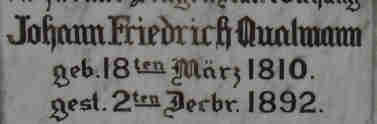 Johann Friedrich Qualmann
geb. 18ten März 1810.
gest. 2ten Decbr. 1892.